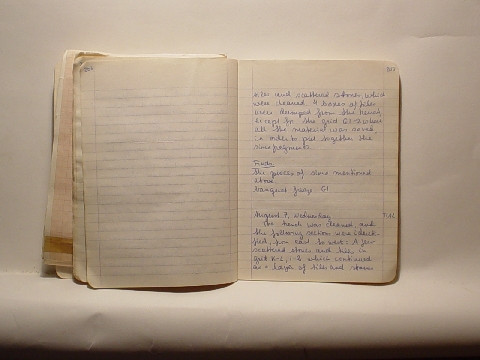 tiles and scattered stones, which
were cleaned. 4 boxes of tiles
were dumped from the trench,
except for the grid G1-2 where
all the material was saved
in order to put together the
sima fragments.
Finds:
The pieces of sima mentioned
above.
August 7, Wednesday
The trench was cleaned and
the following sections were identi-
fied, from east to west: A few
scattered stones and tiles, in
grid 1-2 which continued
as a layer of tiles and stones